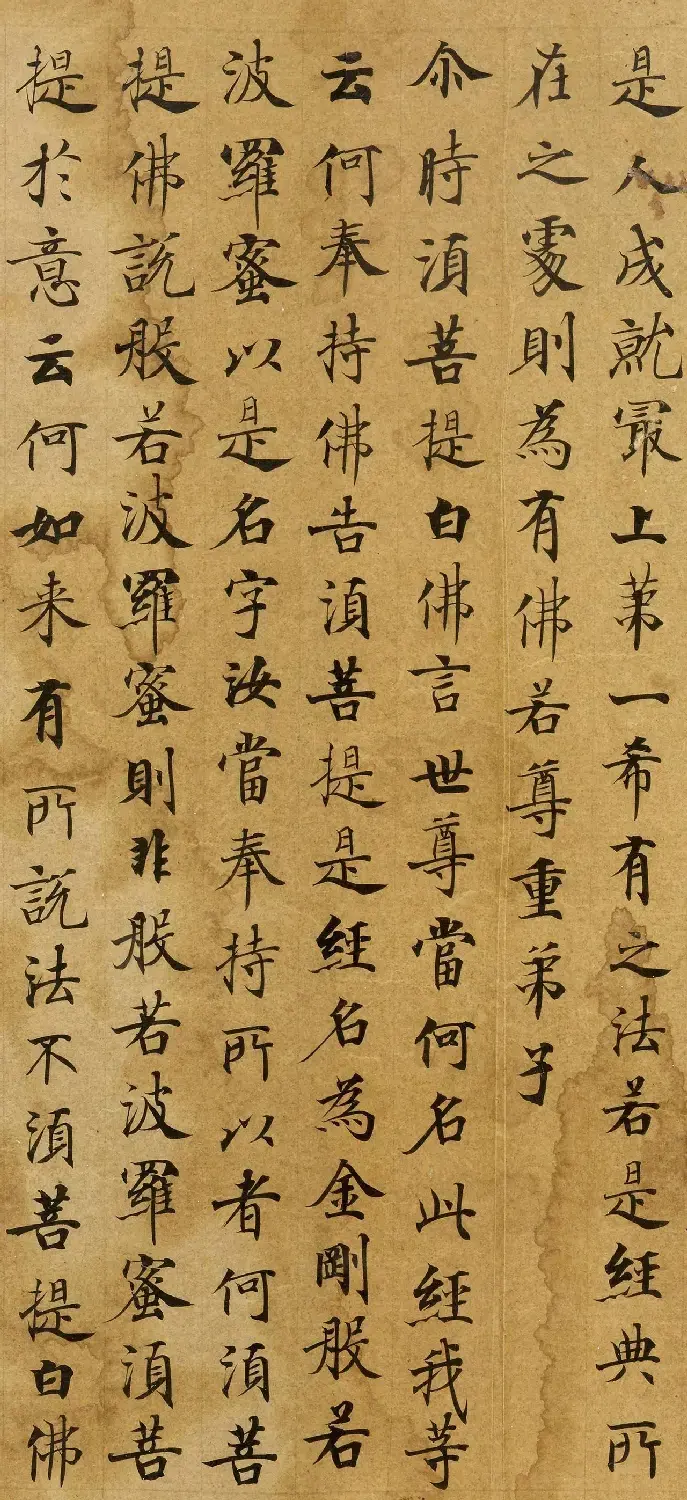 是人成就冣上苐一希有之法若是經典所
在之處則為有佛若尊重弟子
尒時湏菩提白佛言世尊當何名此經我等
云何奉持佛告湏菩提是經名為金剛般若
波羅蜜以是名字汝當奉持所以者何湏菩
提佛說般若波羅蜜則非般若波羅蜜湏菩
提於意云何如来有所說法不湏菩提白佛